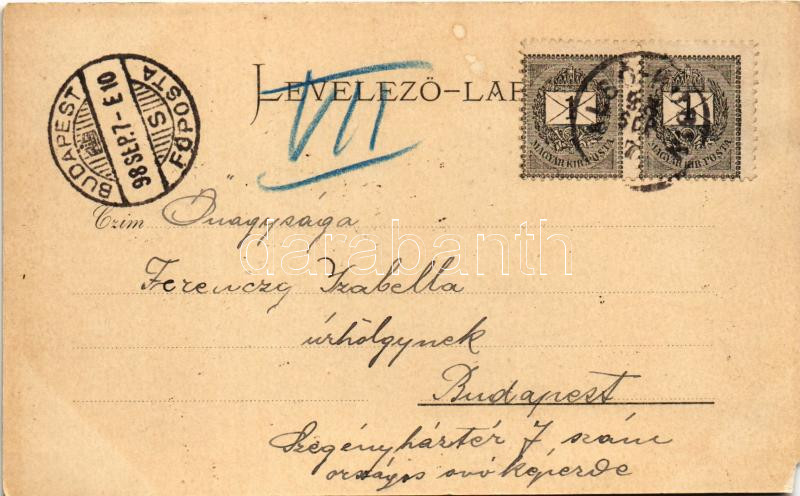 LEVELEZŐ-LAP
VII
BUDAPEST FŐPOSTA
98 SEP. 7 - E 10
S
1
MAGYAR KIR. POSTA
1
MAGYAR KIR. POSTA
SEP
7
Czim Őnagysága
darabanth
Ferenczy Izabella
úrhölgynek
Budapest
Szegényháztér 7 szám
országos óvóképezde